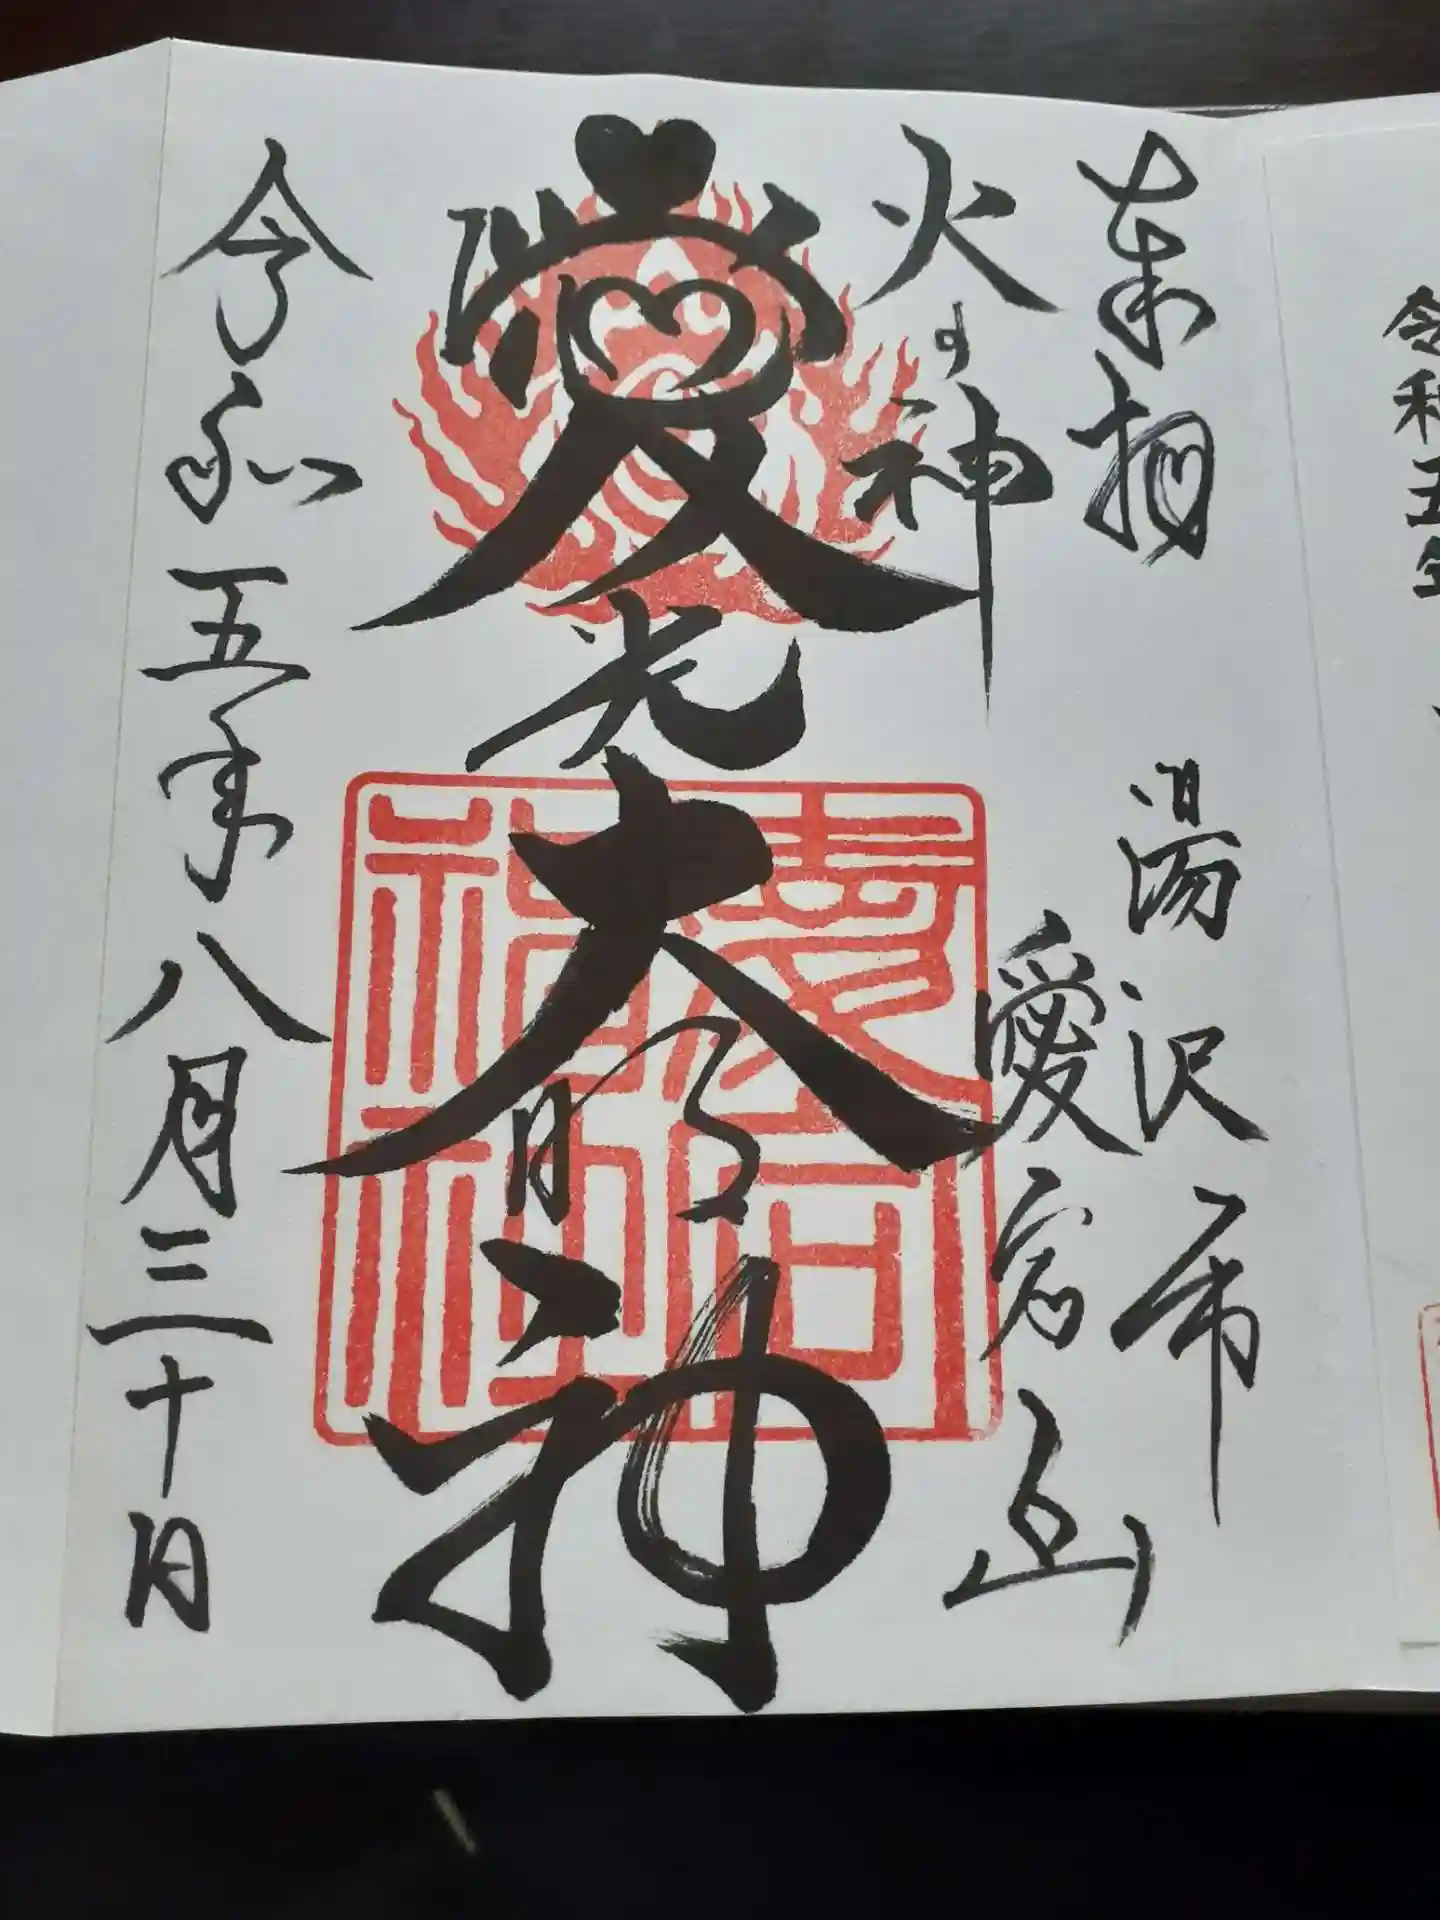 令和五年
奉拝
湯沢市
愛宕山
火の神
愛光大明神
愛宕神社
令和五年八月三十日